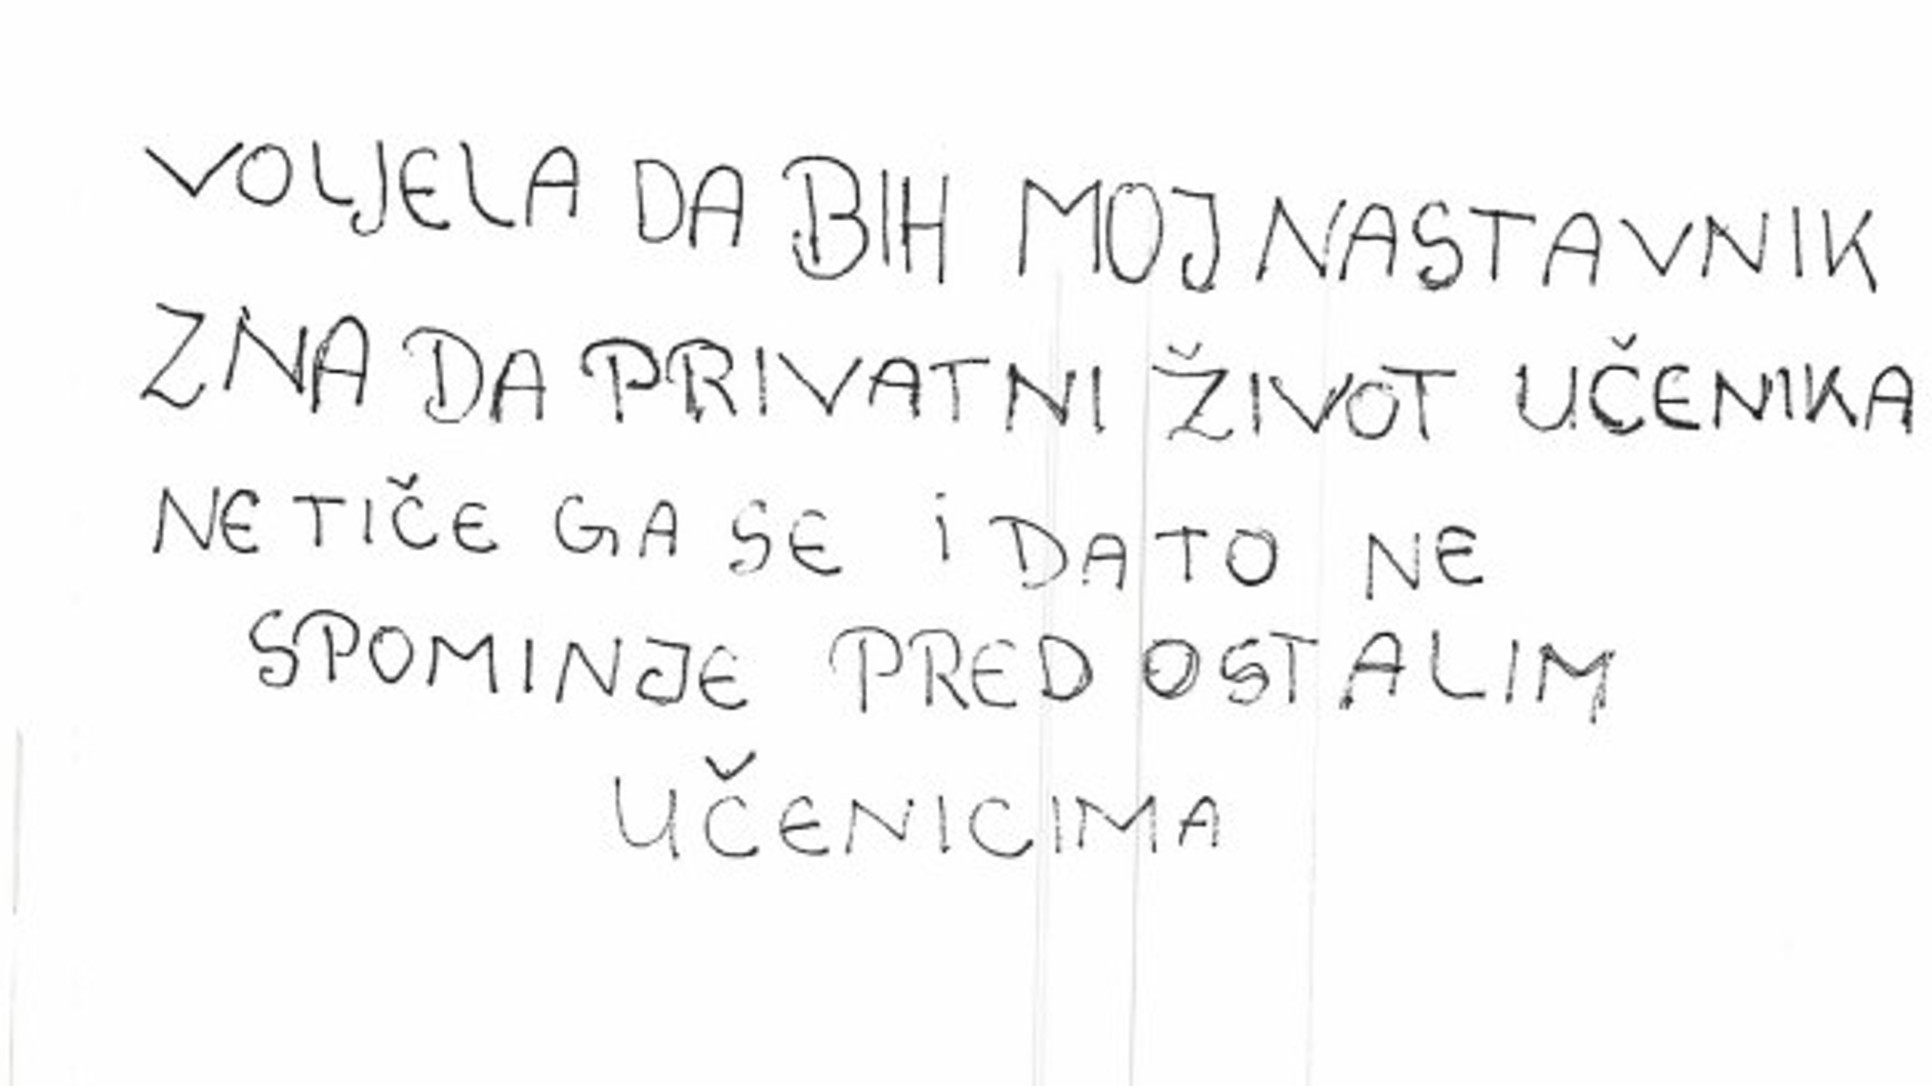 VOLJELA DA BIH MOJ NASTAVNIK
ZNA DA PRIVATNI ŽIVOT UČENIKA
NE TIČE GA SE i DA TO NE
SPOMINJE PRED OSTALIM
UČENICIMA